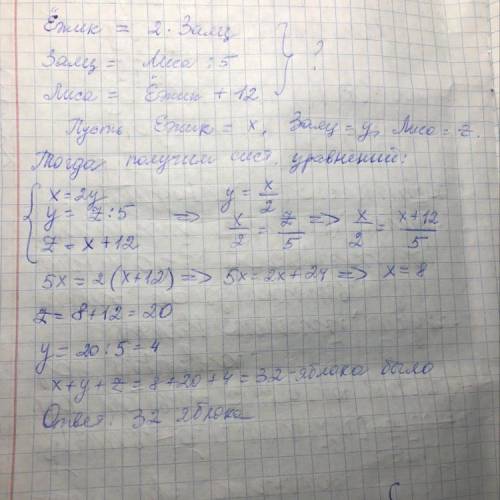 Ёжик = 2 · Заяц
Заяц = Лиса : 5 } ?
Лиса = Ёжик + 12
Пусть Ёжик = x, Заяц = y, Лиса = z.
Тогда получим сист. уравнений:
{ x = 2y
y = z : 5
z = x + 12
=> y = x/2
x/2 = z/5 => x/2 = (x+12)/5
5x = 2(x+12) => 5x = 2x + 24 => x = 8
z = 8 + 12 = 20
y = 20 : 5 = 4
x + y + z = 8 + 20 + 4 = 32 яблока было
Ответ: 32 яблока